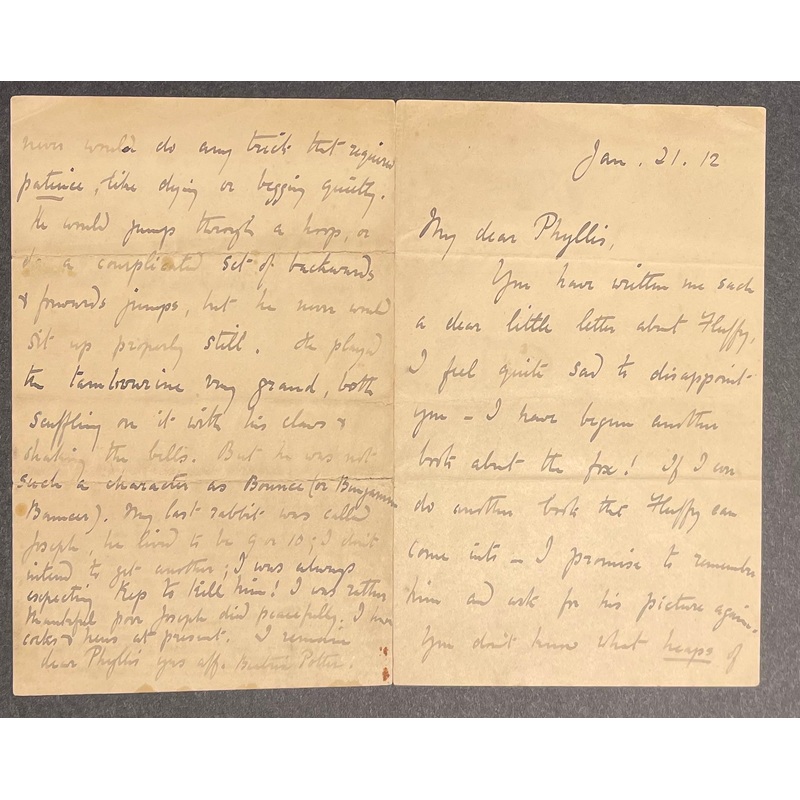 Jan. 21. 12
My dear Phyllis,
You have written me such
a dear little letter about Fluffy,
I feel quite sad to disappoint
you – I have begun another
book about the fox! If I can
do another book that Fluffy can
come into – I promise to remember
him and ask for his picture again.
You don't know what heaps of
never would do any trick that required
patience, like dying or begging quietly.
He would jump through a hoop, or
do a complicated set of backwards
& forwards jumps, but he never would
sit up properly still. He played
the tambourine very grand, both
scuffling on it with his claws &
shaking the bells. But he was not
such a character as Bounce (or Benjamin
Bouncer). My last rabbit was called
Joseph, he lived to be 9 or 10; I don't
intend to get another; I was always
expecting Kep to kill him! I was rather
thankful poor Joseph died peacefully. I have
cocks & hens at present. I remain
dear Phyllis yrs aff. Beatrix Potter.